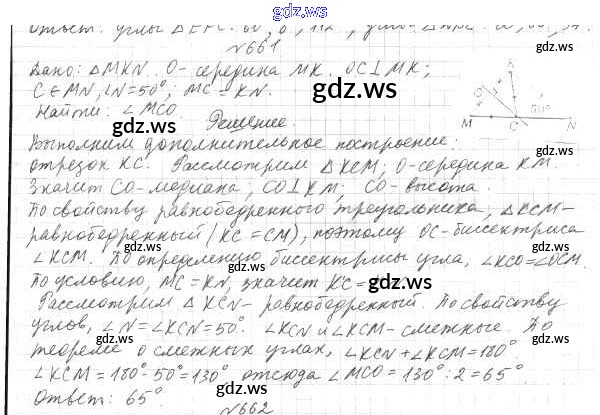 gdz.ws
№661
Дано: △MKN. O-середина MK. OC⊥MK;
C∈MN, ∠N=50°; MC=KN.
Найти: ∠MCO.
Решение.
gdz.ws
Выполним дополнительное построение:
отрезок KC. Рассмотрим △KCM, O-середина KM.
Значит CO-медиана; CO⊥KM; CO-высота.
По свойству равнобедренного треугольника, △KCM-
равнобедренный (KC=CM), поэтому OC-биссектриса
∠KCM. По определению биссектрисы угла, ∠KCO=∠OCM.
По условию, MC=KN, значит KC=
Рассмотрим △KCN-равнобедренный. По свойству
углов, ∠N=∠KCN=50°. ∠KCN и ∠KCM-смежные. По
теореме о смежных углах, ∠KCN+∠KCM=180°
∠KCM=180°-50°=130° отсюда ∠MCO=130°:2=65°
Ответ: 65°.
№662
K
O
50°
M C N
gdz.ws
gdz.ws
gdz.ws
gdz.ws
gdz.ws
gdz.ws